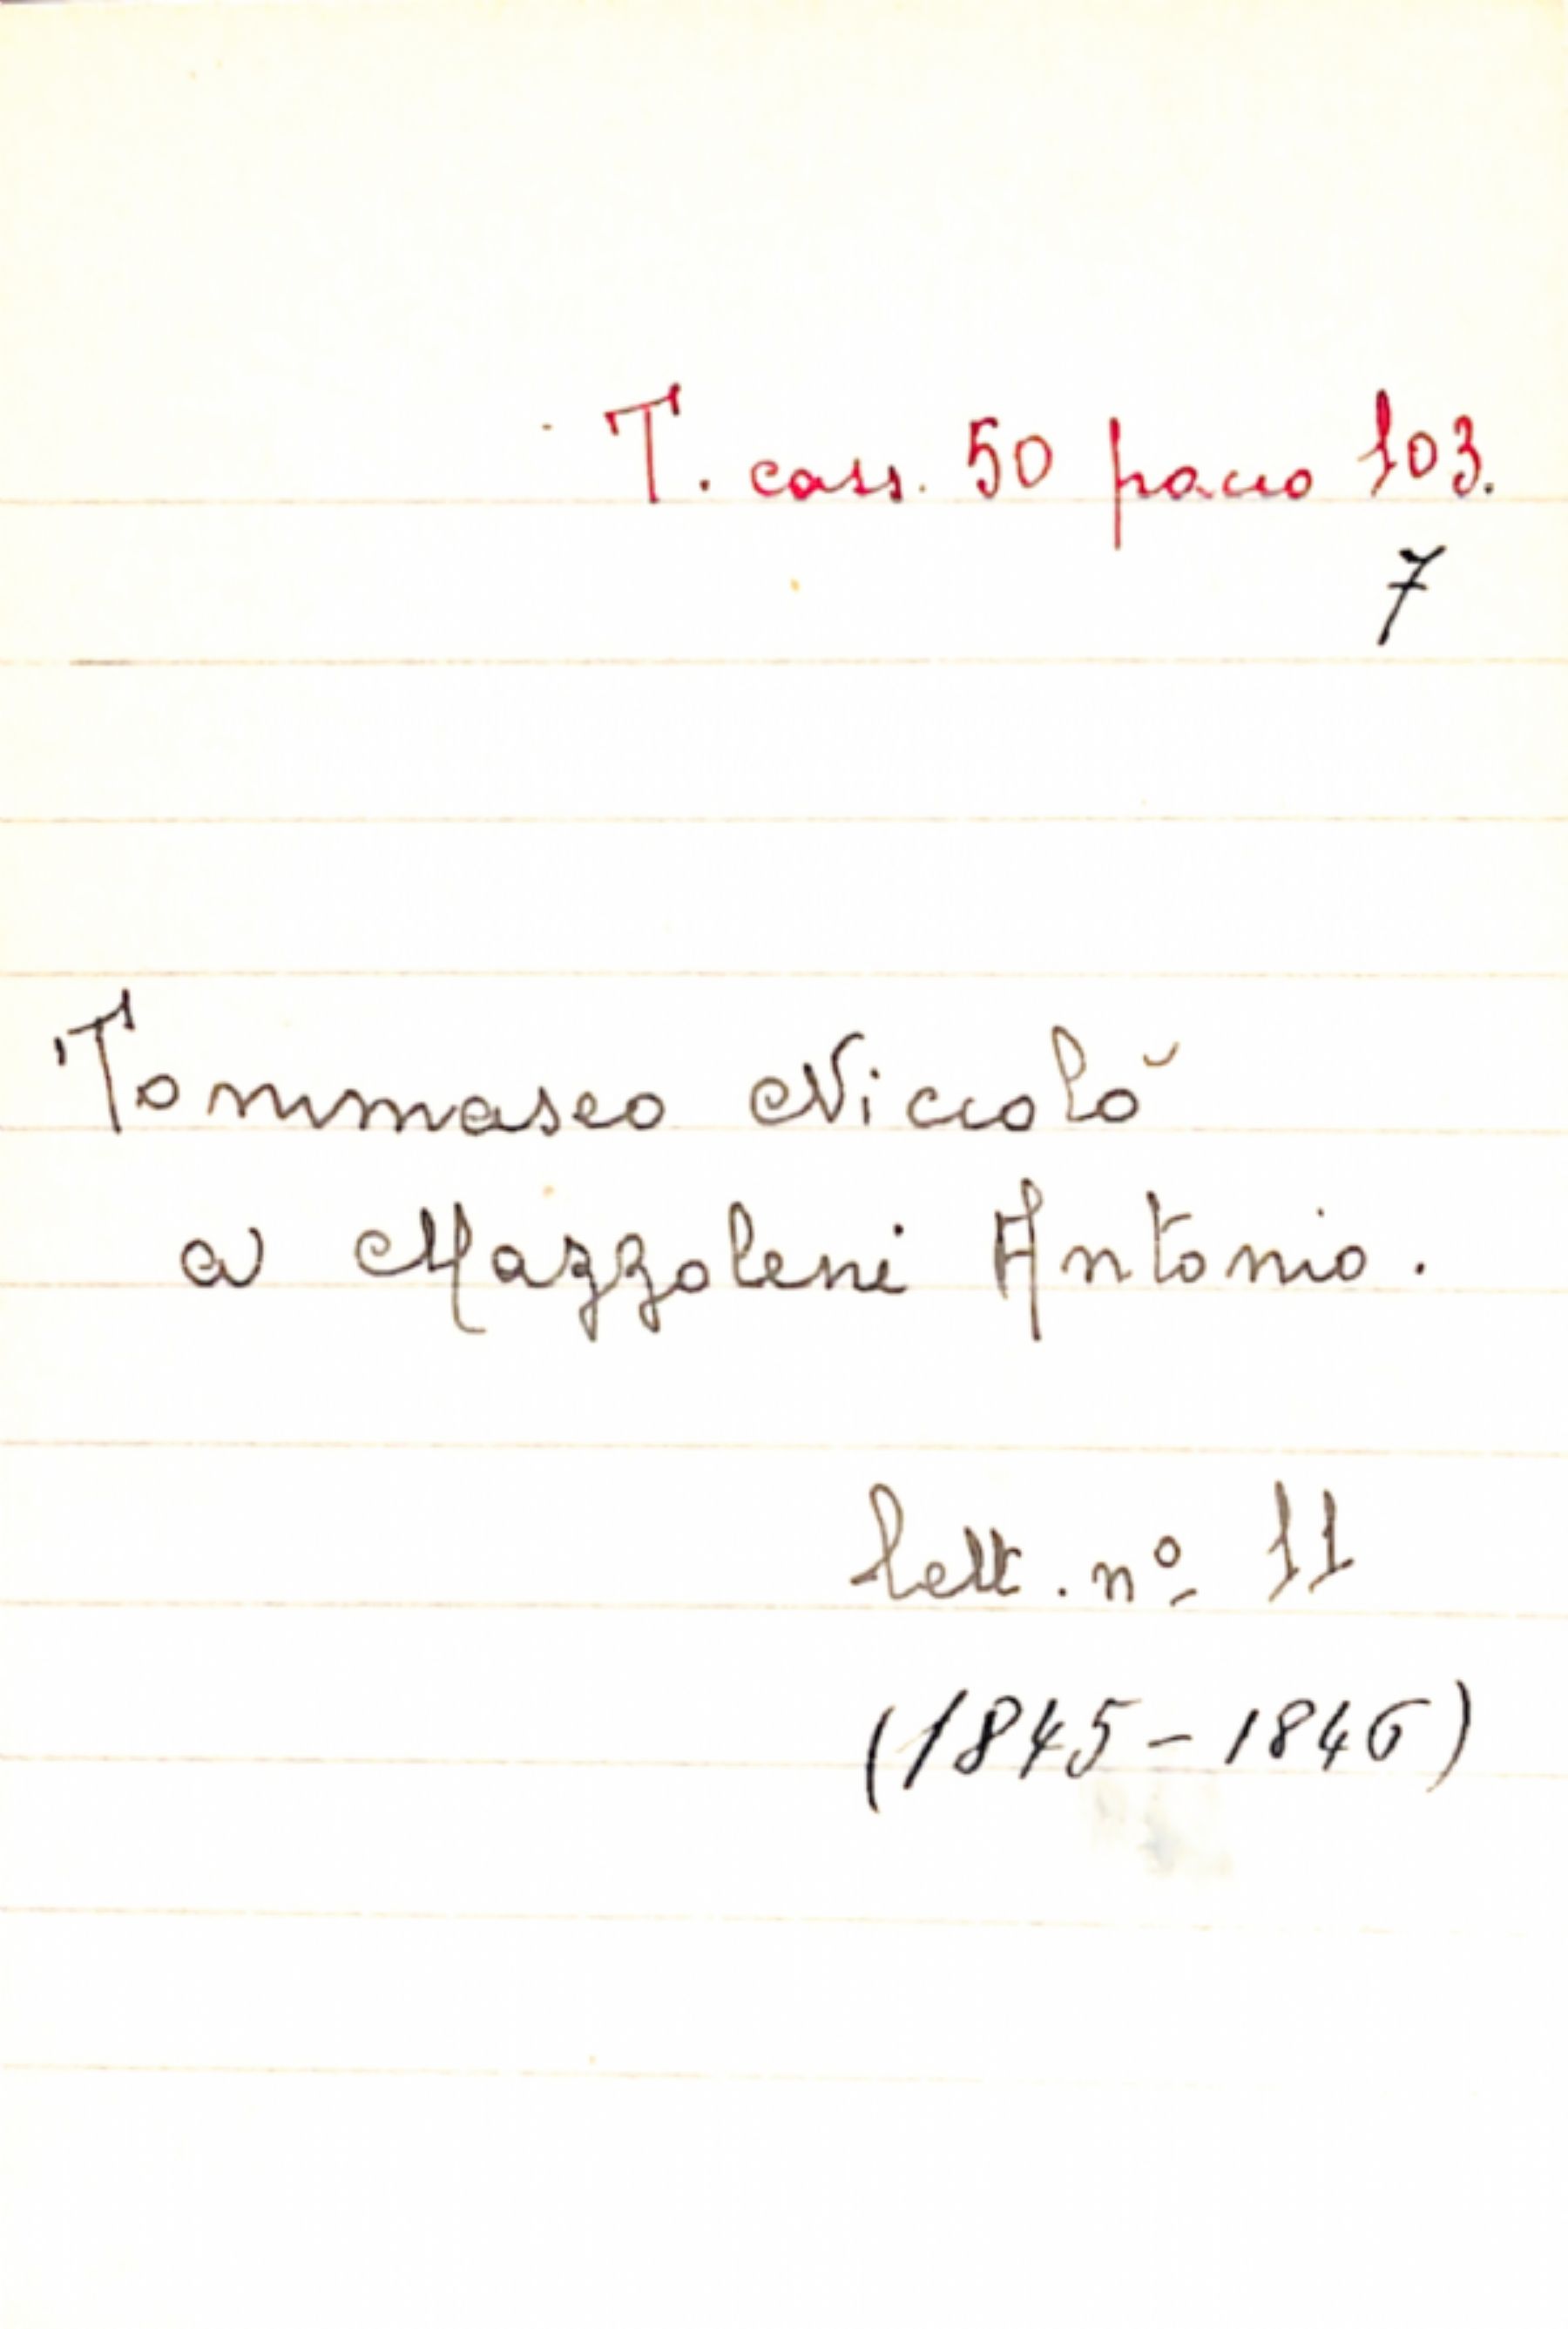 T. cass. 50 pacco 103.
7
Tommaseo Niccolò
a Mazzoleni Antonio.
lett. nº 11
(1845-1846)